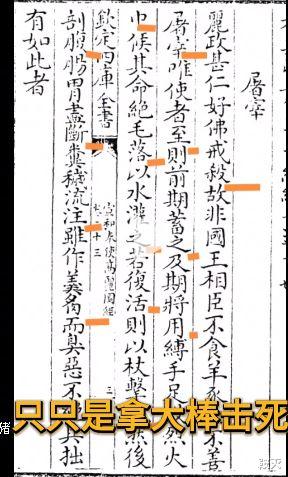 屠宰
麗政甚仁好佛戒殺故非國王相臣不食羊豕不善
屠宰唯使者至則前期蓄之及期將用縛手足烈火
中候其命絕毛落以水灌之若復活則以杖擊然後
欽定四庫全書
宣和奉使高麗圖經
卷二十三
剖腹腸胃盡斷糞穢流注雖作羹胾而臭惡不其拙
有如此者
猪
只只是拿大棒击死